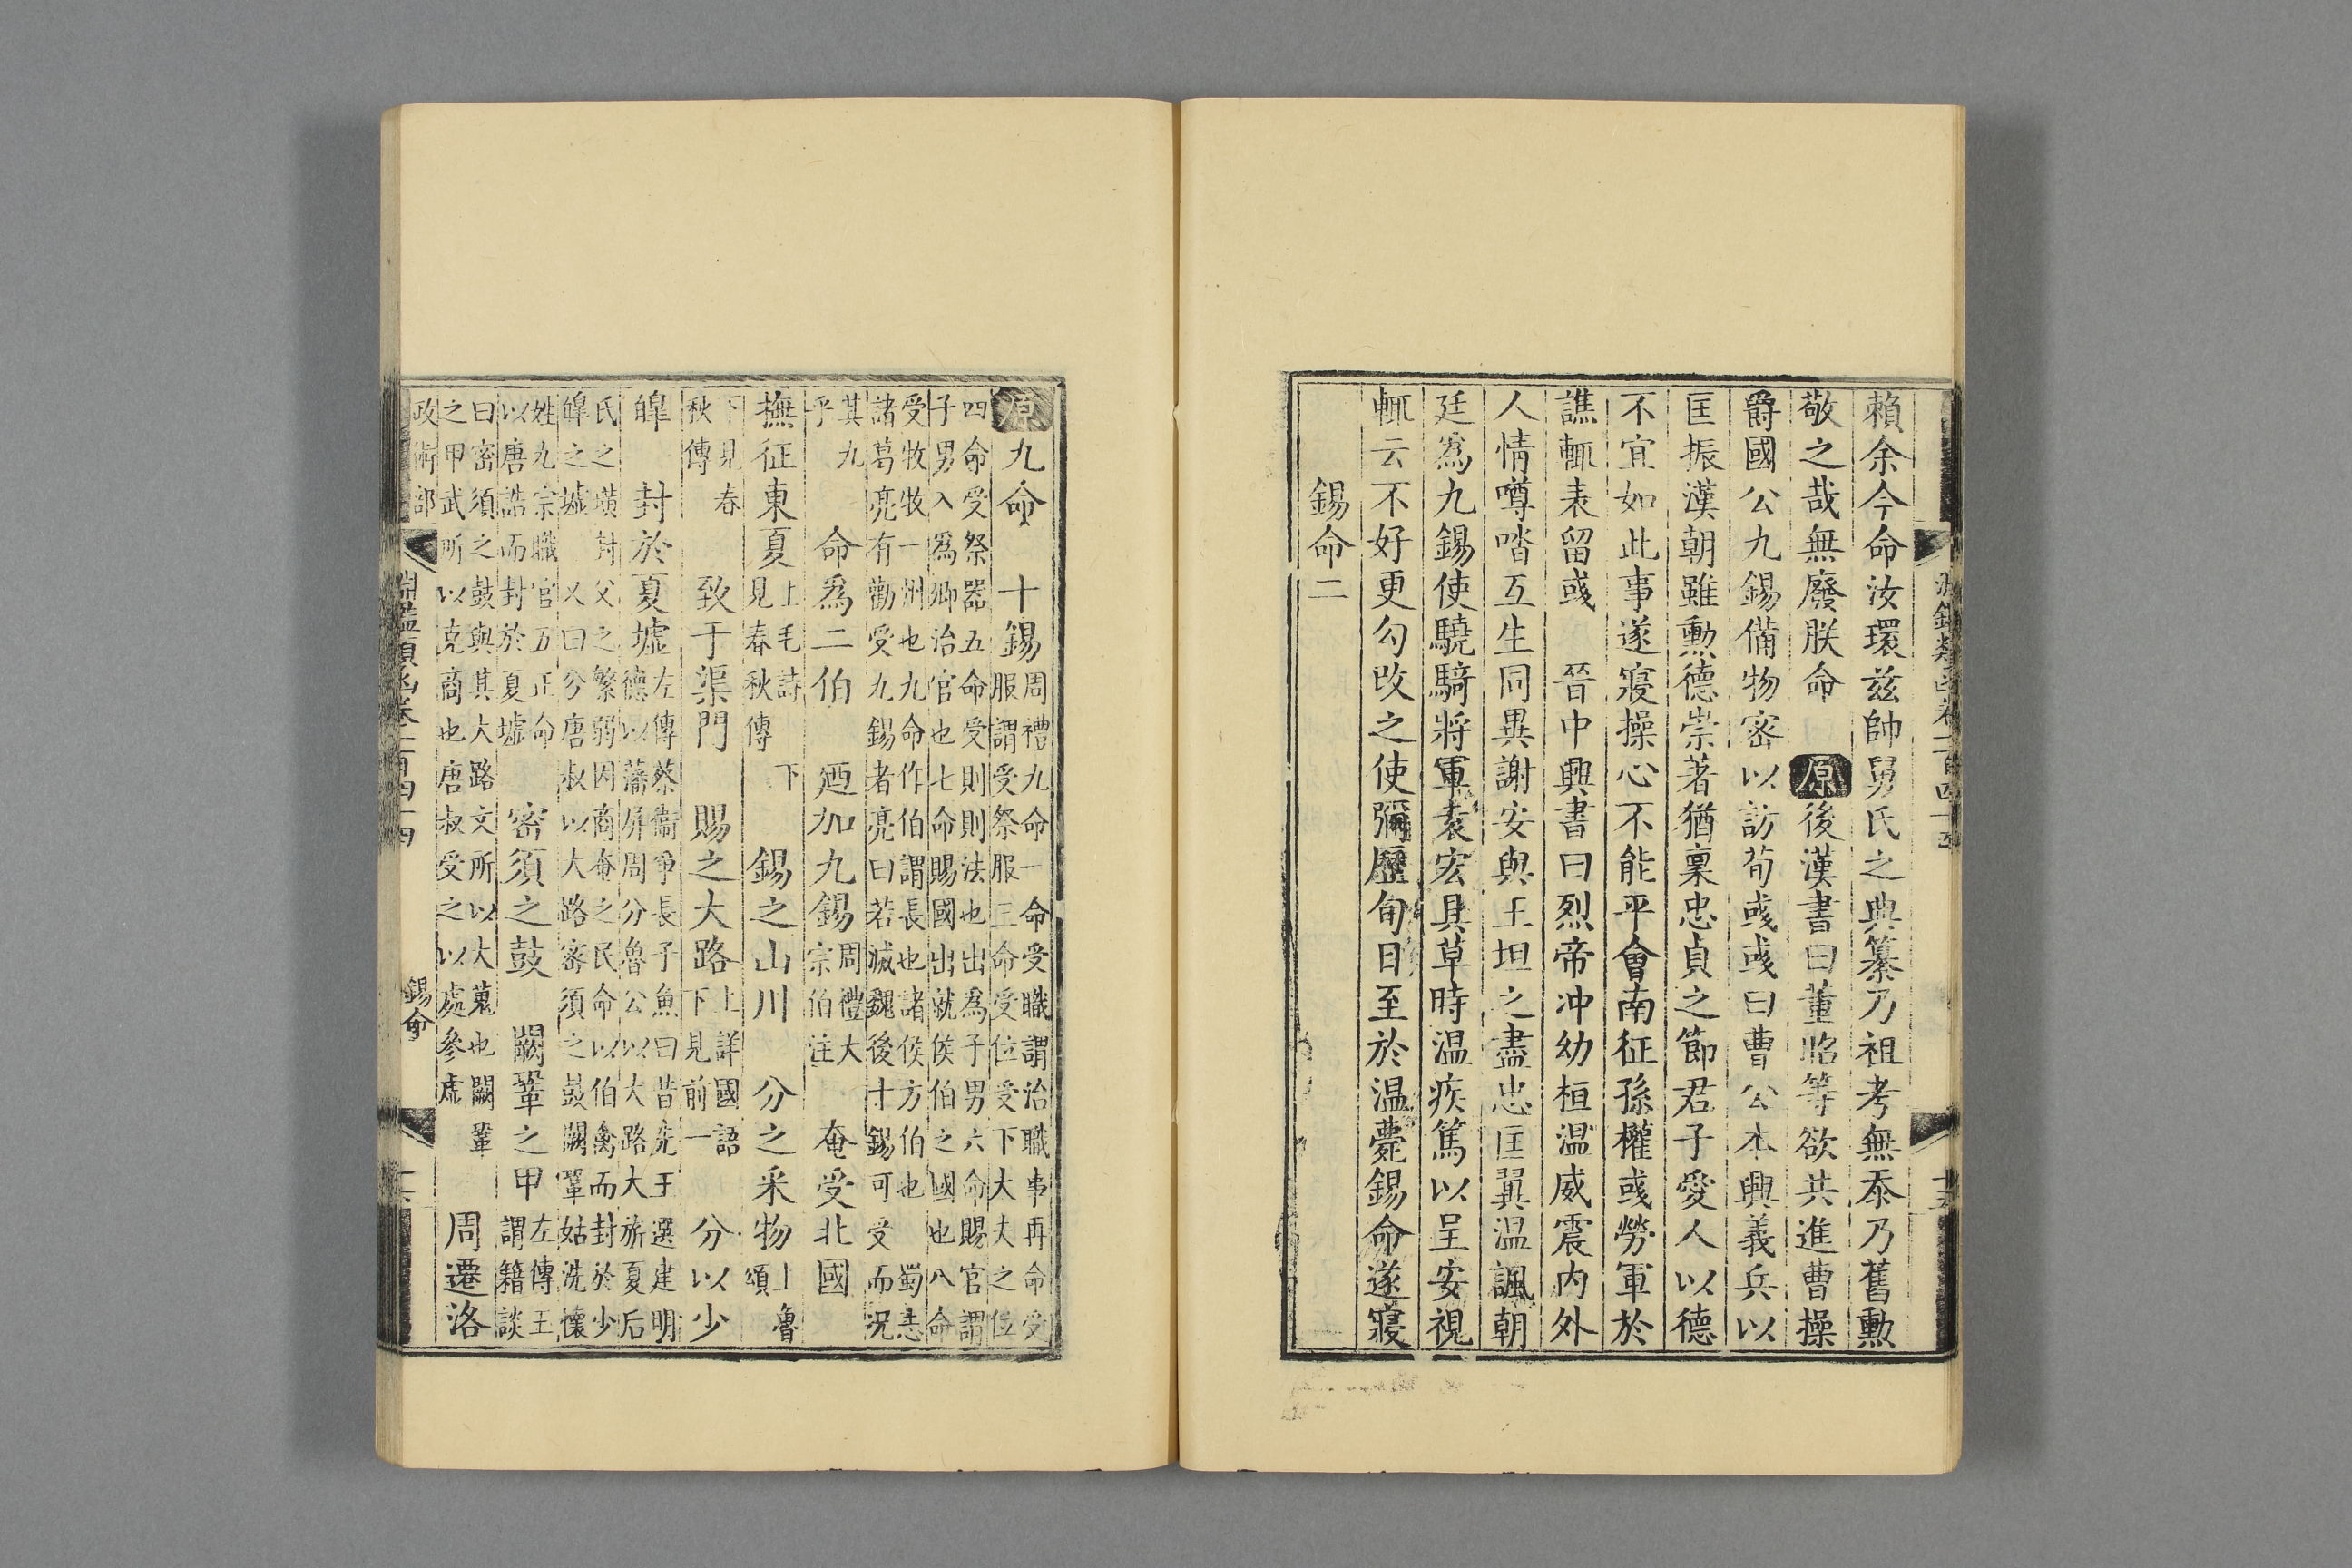 賴余今命汝環兹帥舅氏之典纂乃祖考無忝乃舊勲
敬之哉無廢朕命 原後漢書曰董昭等欲共進曹操
爵國公九錫備物密以訪荀彧彧曰曹公本興義兵以
匡振漢朝雖勲德崇著猶稟忠貞之節君子愛人以德
不宜如此事遂寢操心不能平會南征孫權彧勞軍於
譙輒表留彧 晉中興書曰烈帝冲幼桓温威震内外
人情噂㳫互生同異謝安與王坦之盡忠匡翼温諷朝
廷爲九錫使驍騎將軍袁宏具草時温疾篤以呈安視
輒云不好更勾改之使彌歷旬日至於温薨錫命遂寢
錫命二
原九命 十錫周禮九命一命受職謂治職事再命受
服謂受祭服三命受位受下大夫之位
四命受祭器五命受則則法也出爲子男六命賜官謂
子男入爲卿治官也七命賜國出就侯伯之國也八命
受牧牧一洲也九命作伯謂長也諸侯方伯也蜀志
諸葛亮有勸受九錫者亮曰若滅魏後十錫可受而况
其九
乎 命爲二伯 廼加九錫周禮大
宗伯注 奄受北國
撫征東夏上毛詩 下
見春秋傳 錫之山川 分之采物上魯
頌
下見春
秋傳 致于渠門 賜之大路上詳國語
下見前一 分以少
皥 封於夏墟左傳蔡衞爭長子魚曰昔先王選建明
德以藩屏周分魯公以大路大旂夏后
氏之璜封父之繁弱因商奄之民命以伯禽而封於少
皥之墟 又曰分唐叔以大路密須之鼓闕鞏姑洗懷
姓九宗職官五正命
以唐誥而封於夏墟 密須之鼓 闕鞏之甲左傳王
謂籍談
曰密須之鼓與其大路文所以大蒐也闕鞏
之甲武所以克商也唐叔受之以處參虚 周遷洛
政術部
淵鑑類函卷一百四十四
錫命